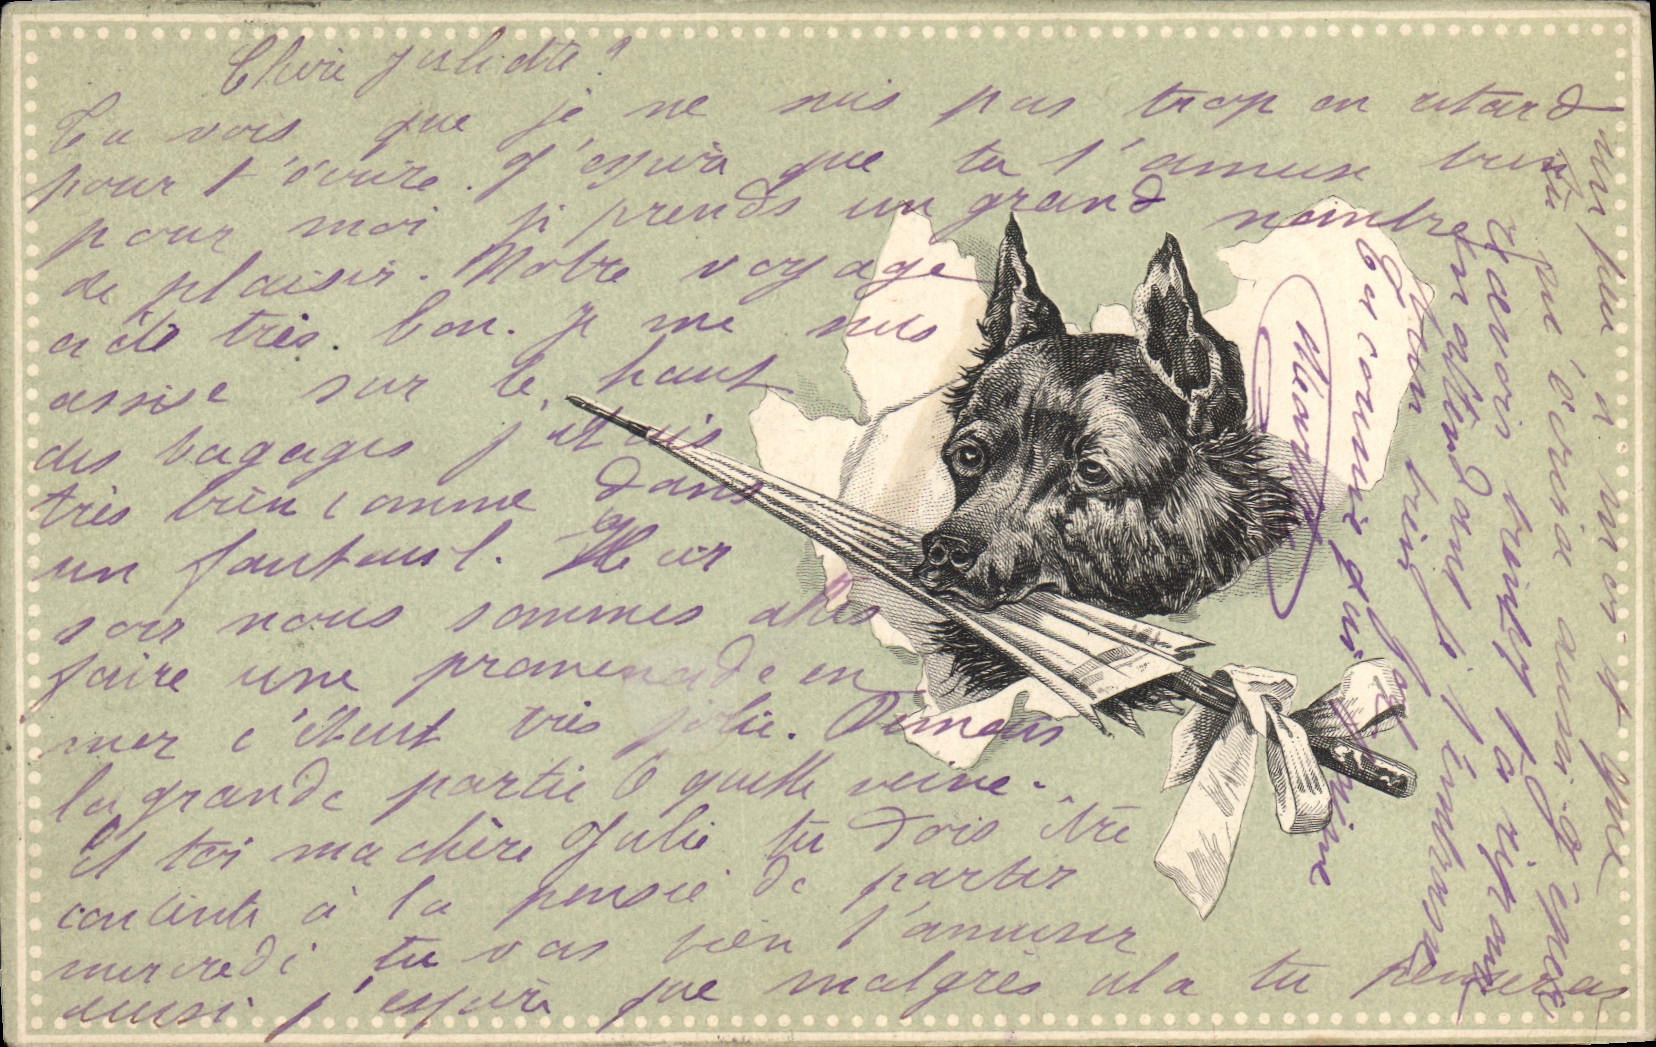 Chère Juliette!
Tu vois que je ne suis pas trop en retard
pour t'écrire. J'espère que tu t'amuse bien
pour moi je prends un grand nombre
de plaisir. Notre voyage
a été très bon. Je me suis
assise sur le haut
des bagages j'étais
très bien comme dans
un fauteuil. Hier
soir nous sommes allés
faire une promenade en
mer c'était très jolie. Demain
la grande partie O quelle veine.
Et toi ma chère Julie tu dois être
contente à la pensée de partir
mercredi tu vas bien t'amuser
aussi j'espère que malgrès cela tu penseras
un peu à moi et que
tu m'écrira aussi. J'espère
recevoir bientôt ta réponse
En attendant je t'embrasse
bien fort
Ta cousine qui t'aime